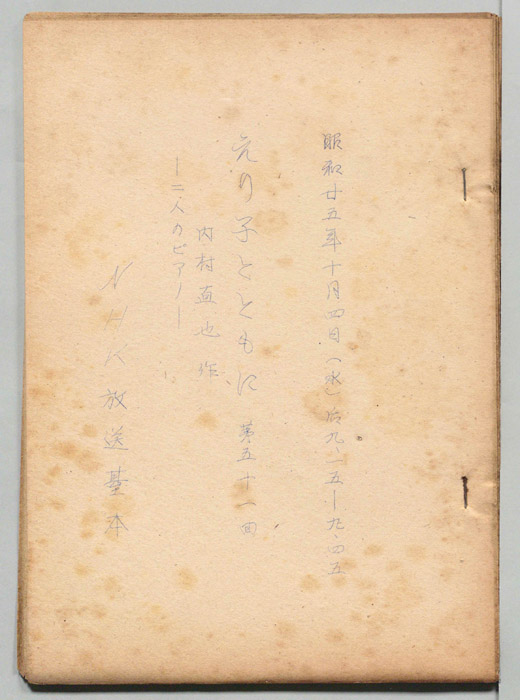 昭和廿五年十月四日(水)后九・一五―九・四五
えり子とともに 第五十一回
内村直也 作
―二人のピアノ―
NHK放送台本